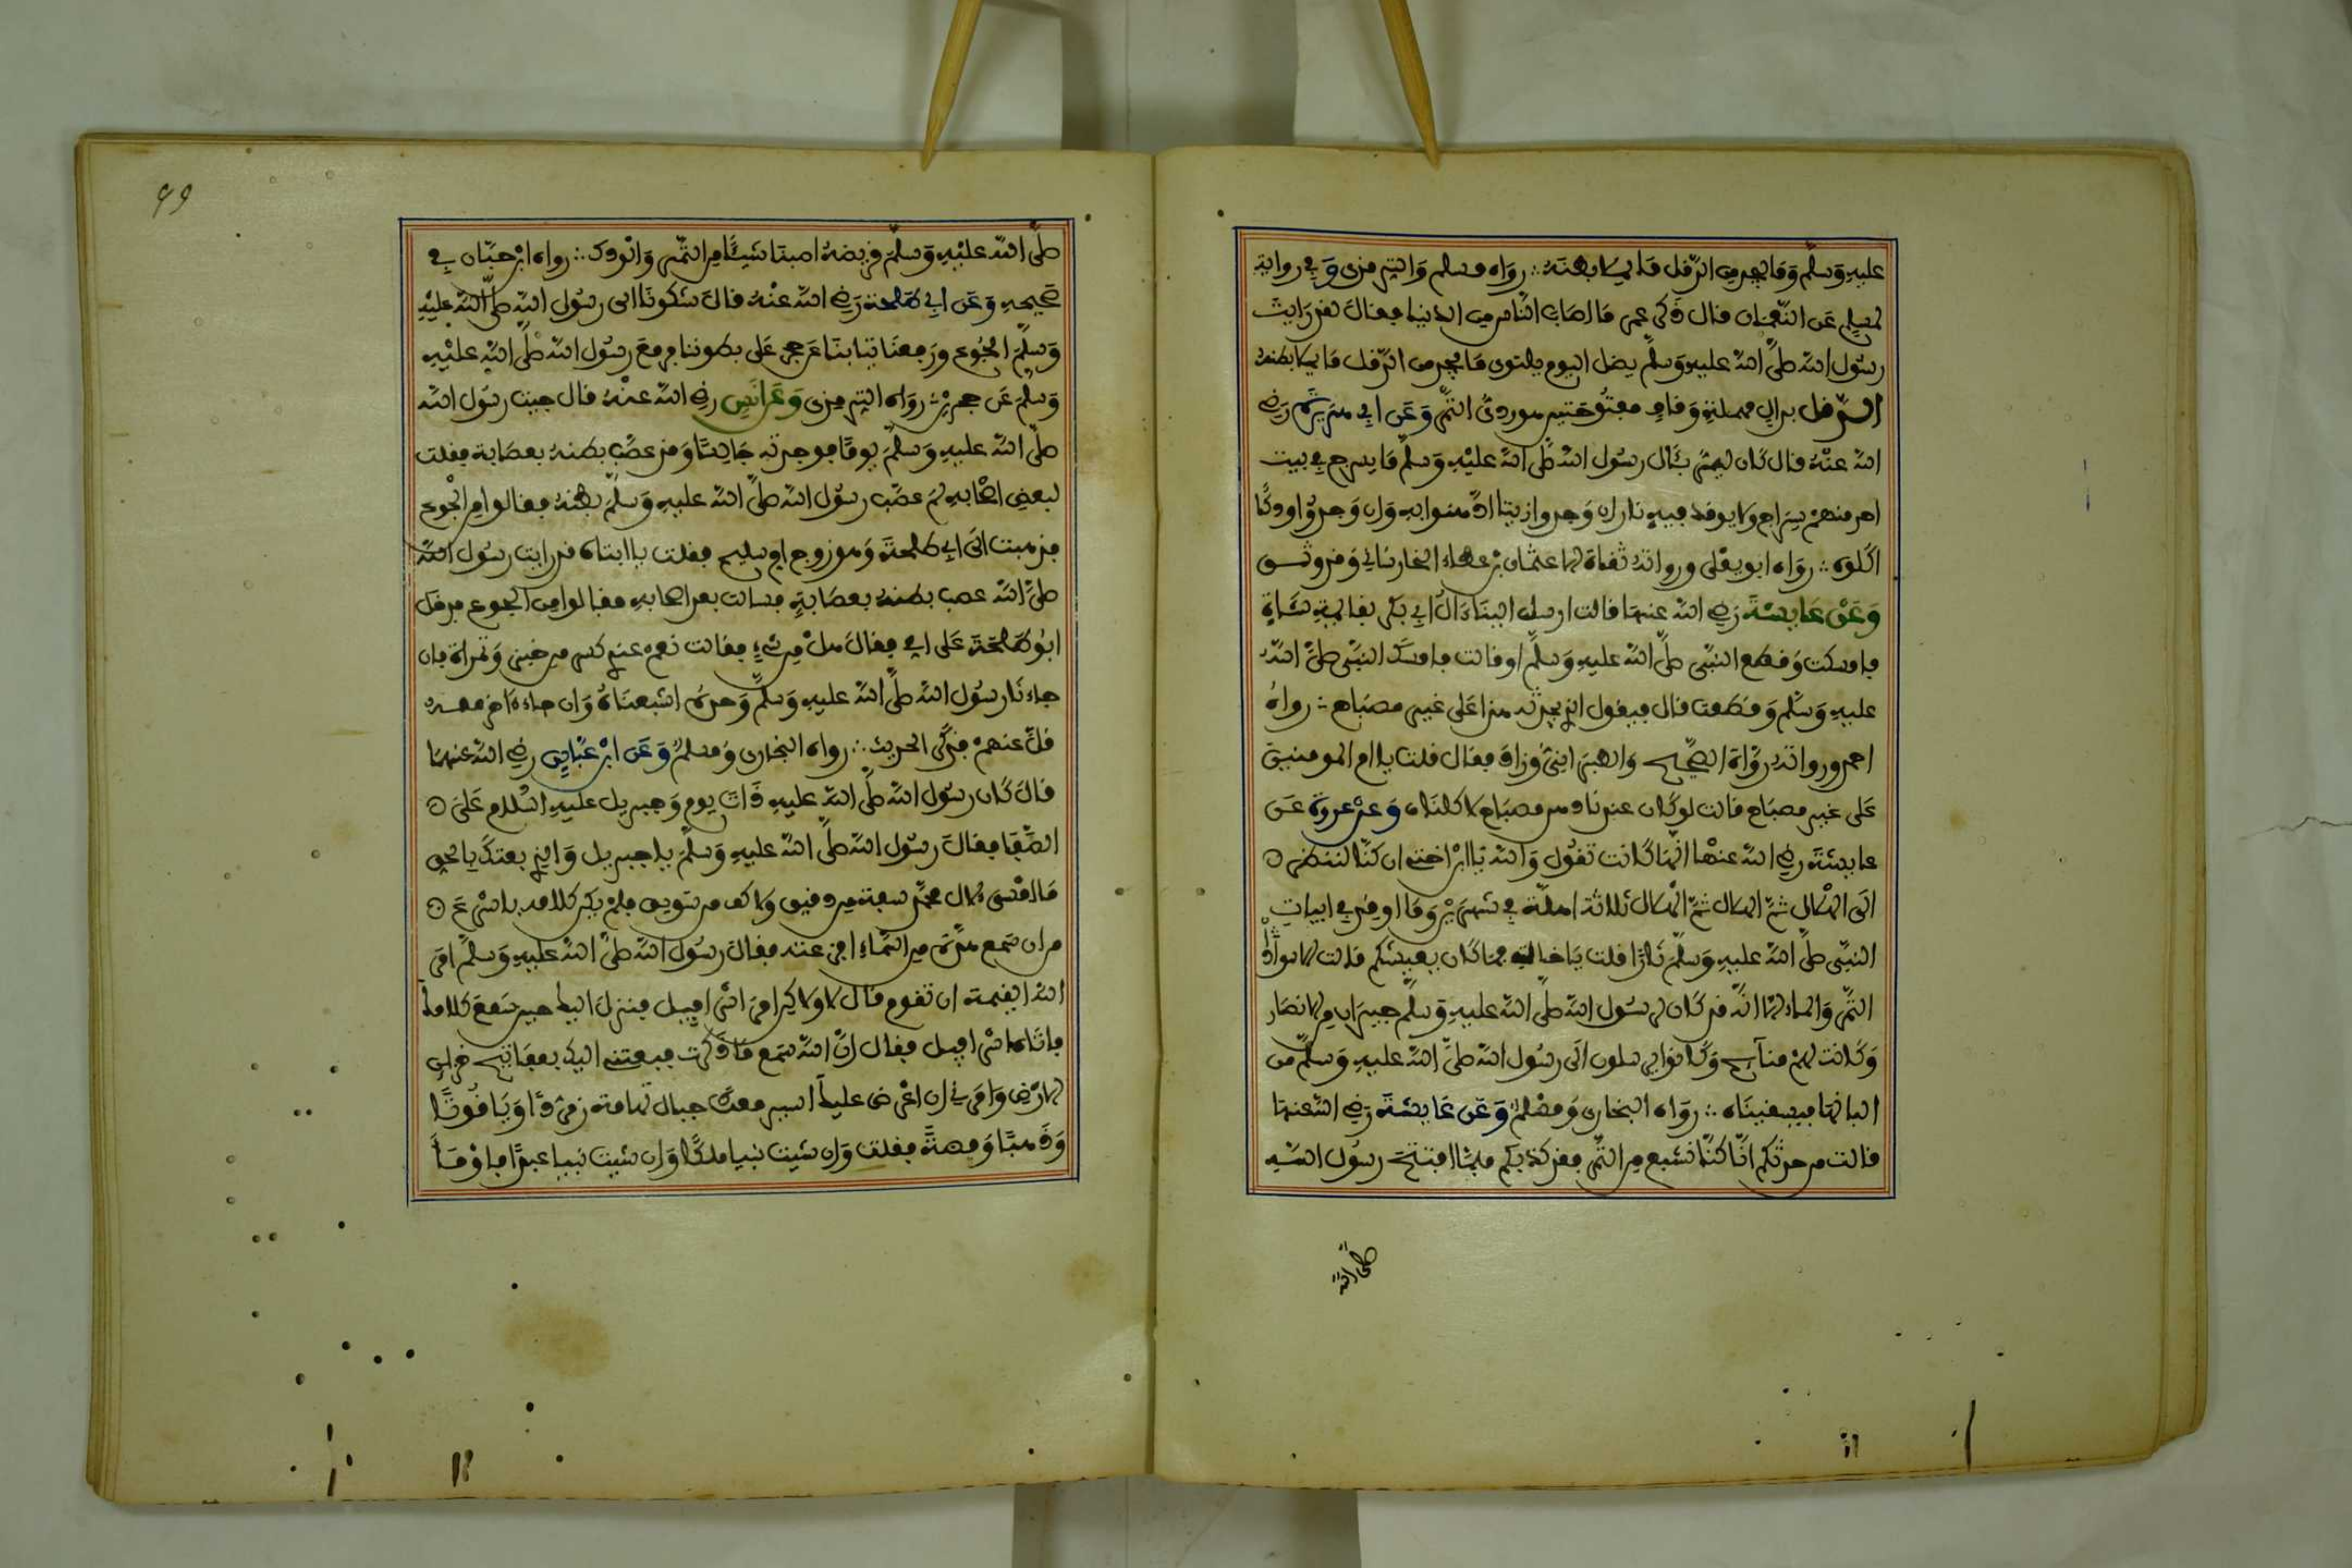 عليه وسلم وما يجد من الدقل ما يملا بطنه ∴ رواه مسلم والترمذي وفي رواية
لمسلم عن النعمان قال ذكر عمر ما اصاب الناس من الدنيا فقال لقد رايت
رسول الله صلى الله عليه وسلم يظل اليوم يلتوي ما يجد من الدقل ما يملا بطنه
الدقل بدال مهملة وقاف مفتوحتين هو ردئ التمر وعن ابي هريرة رضي
الله عنه قال كان ليمر بئال رسول الله صلى الله عليه وسلم ما يسرج في بيت
احد منهم سراج ولا يوقد فيه نار ان وجدوا زيتا ادهنوا به وان وجدوا ودكا
اكلوه ∴ رواه ابو يعلى ورواته ثقاة الا عثمان بن عطاء الخراساني وقد وثق
وعن عايشة رضي الله عنها قالت ارسل الينا ءال ابي بكر بقائمة شاة
فامسكت وقطع النبي صلى الله عليه وسلم او قالت فامسك النبي صلى الله
عليه وسلم وقطعت قال فيقول الذي تحدثه هذا على غير مصباح ∴ رواه
احمد ورواته رواة الصحيح والطبراني وزاد فقال قلت يا ام المومنين
على غير مصباح قالت لو كان عندنا دهن مصباح لاكلناه وعن عروة عن
عايشة رضي الله عنها انها كانت تقول والله يا ابن اختي ان كنا لننظر
الى الهلال ثم الهلال ثم الهلال ثلاثة اهلة في شهرين وما اوقد في ابيات
النبي صلى الله عليه وسلم نار قلت يا خالة فما كان يعيشكم قالت الاسودان
التمر والماء الا انه قد كان لرسول الله صلى الله عليه وسلم جيران من الانصار
وكانت لهم منايح وكانوا يرسلون الى رسول الله صلى الله عليه وسلم من
البانها فيسقيناه ∴ رواه البخاري ومسلم وعن عايشة رضي الله عنها
قالت من حدثكم انا كنا نشبع من التمر فقد كذبكم فلما افتتح رسول الله
صلى الله
99
صلى الله عليه وسلم قريضة اصبنا شيئا من التمر والودك ∴ رواه ابن حبان في
صحيحه وعن ابي طلحة رضي الله عنه قال شكونا الى رسول الله صلى الله عليه
وسلم الجوع ورفعنا ثيابنا عن حجر على بطوننا فرفع رسول الله صلى الله عليه
وسلم عن حجرين ∴ رواه الترمذي وعن انس رضي الله عنه قال جيت رسول الله
صلى الله عليه وسلم يوما فوجدته جالسا وقد عصب بطنه بعصابة فقلت
لبعض اصحابه لم عصب رسول الله صلى الله عليه وسلم بطنه فقالوا من الجوع
فذهبت الى ابي طلحة وهو زوج ام سليم فقلت يا ابتاه قد رايت رسول الله
صلى الله عصب بطنه بعصابة فسالت بعض اصحابه فقالوا من الجوع فدخل
ابو طلحة على امي فقال هل من شيء فقالت نعم عندي كسر من خبز وتمراة فان
جاءنا رسول الله صلى الله عليه وسلم وحده اشبعناه وان جاء ءاخر معه
قل عنهم فذكر الحديث ∴ رواه البخاري ومسلم وعن ابن عباس رضي الله عنهما
قال كان رسول الله صلى الله عليه ذات يوم وجبريل عليه السلام على
الصفا فقال رسول الله صلى الله عليه وسلم يا جبريل والذي بعثك بالحق
ما امسى لئال محمد سفة من دقيق ولا كف من سويق فلم يكن كلامه باسرع
من ان سمع هدة من السماء افزعته فقال رسول الله صلى الله عليه وسلم امر
الله القيمة ان تقوم قال لا ولاكن امر اسرافيل فنزل اليك حين سمع كلامك
فاتاه اسرافيل فقال ان الله سمع ما ذكرت فبعثني اليك بمفاتيح خزاين
الارض وامرني ان اعرض عليك اسير معك جبال تهامة زمردا وياقوتا
وذهبا وفضة فقلت وان شيت نبيا ملكا وان شيت نبيا عبدا فاومأ